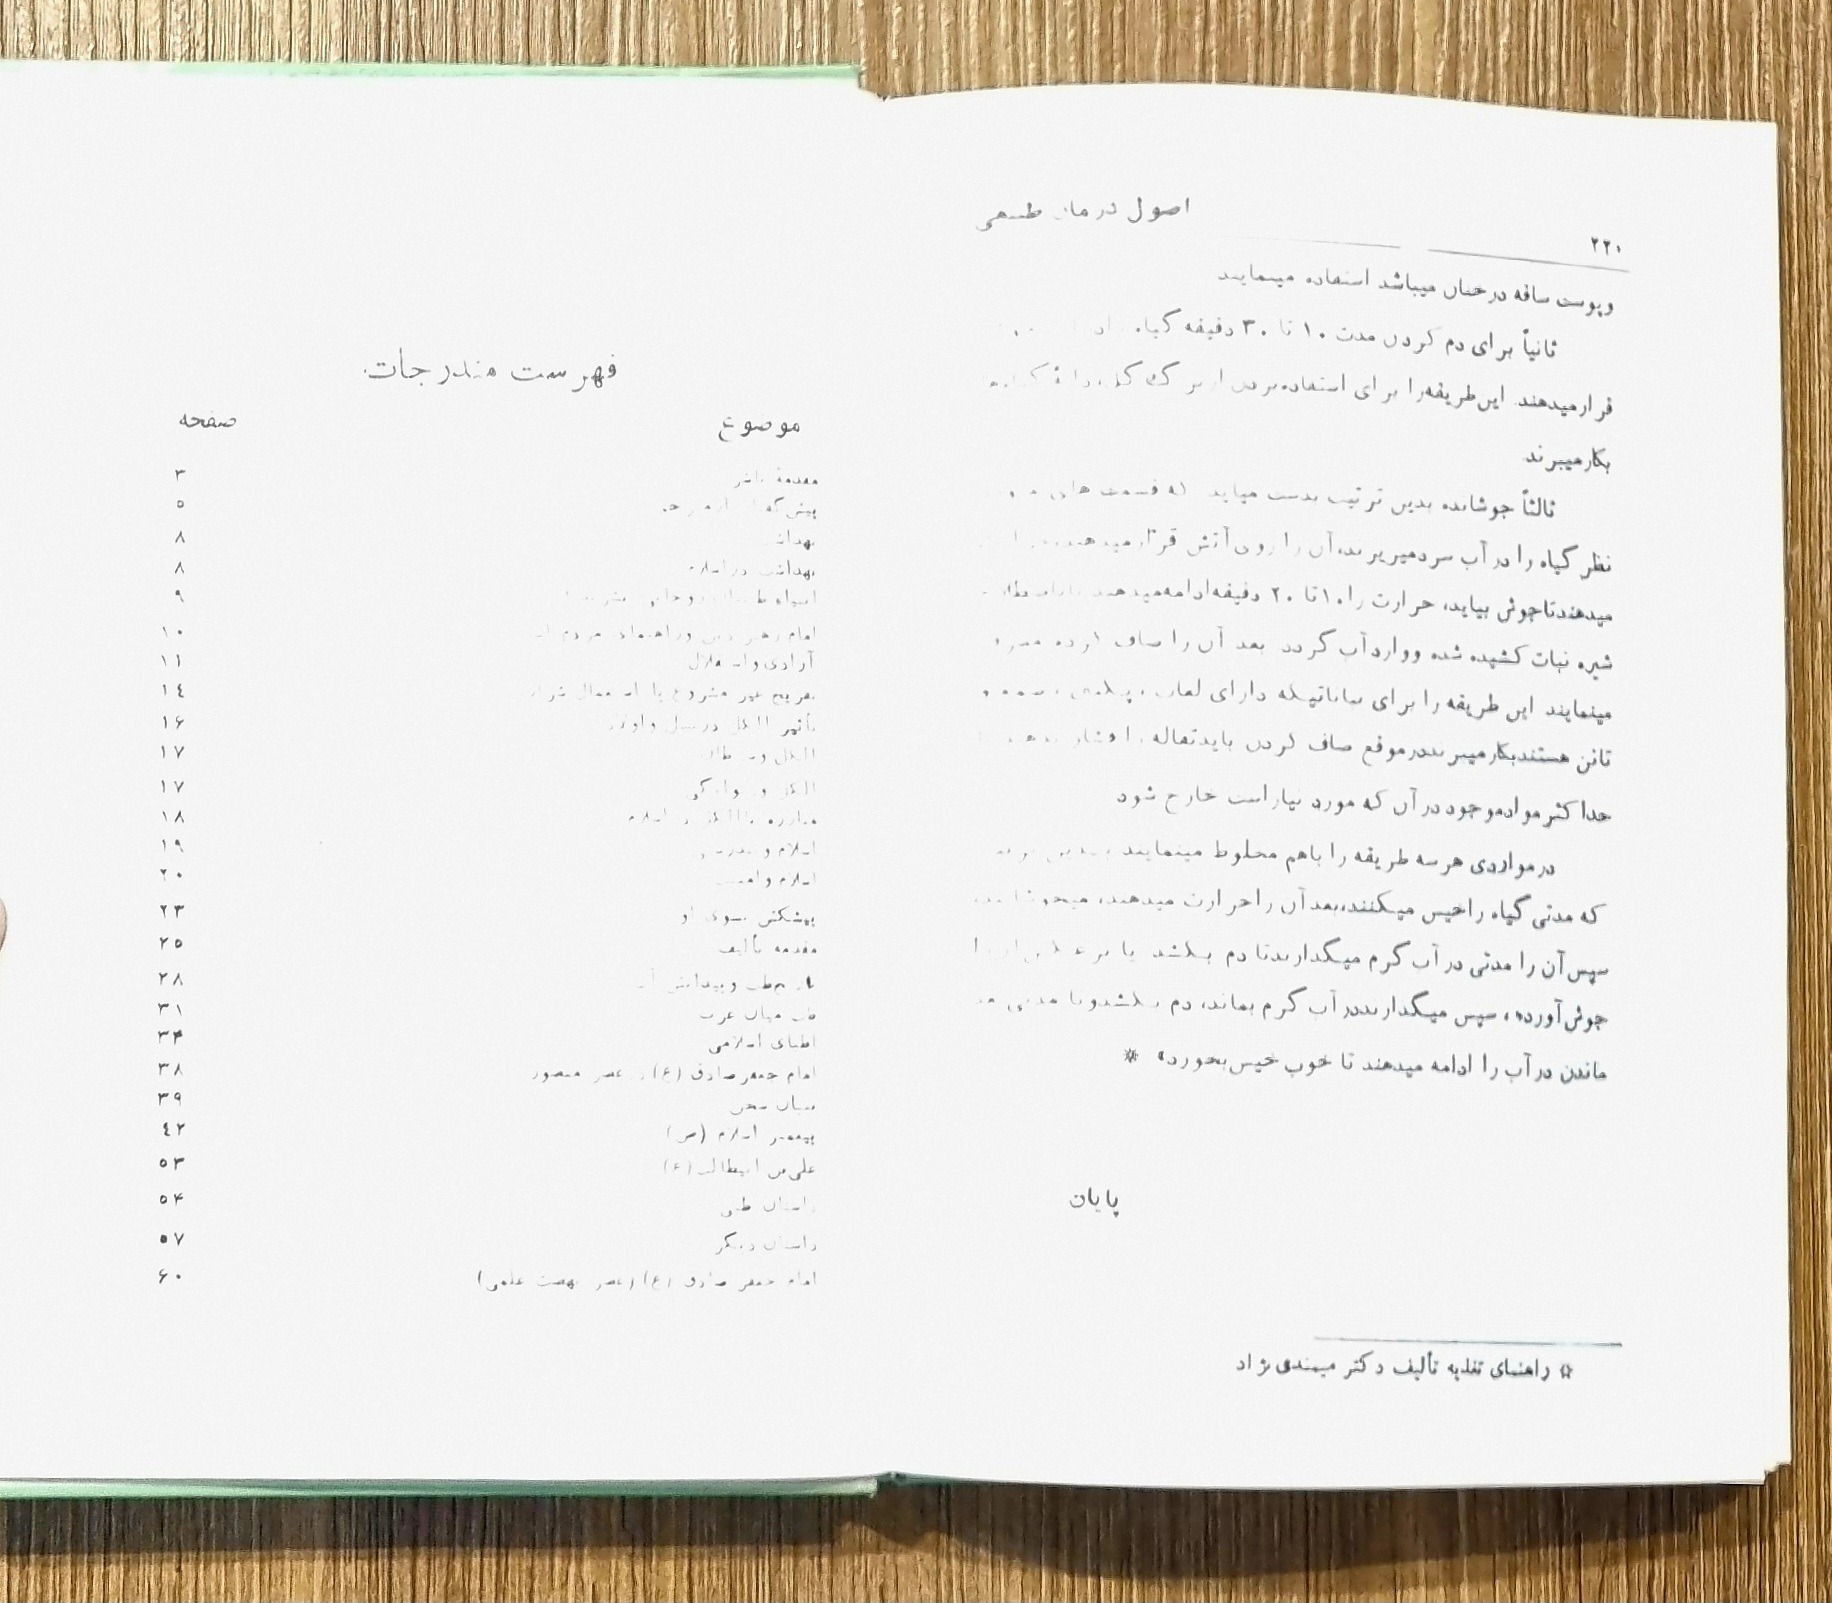 اصول درمان طبیعی
۲۲۰
وپوست ساقه درختان میباشد استفاده مینمایند
ثانیاً برای دم کردن مدت ۱۰ تا ۳۰ دقیقه گیاه
قرارمیدهند این‌طریقه‌را برای استفاده‌بردن از برگ گل
بکارمیبرند
ثالثاً جوشانده بدین ترتیب بدست میاید که قسمت های
نظر گیاه را درآب سردمیریزند،آن را روی آتش قرار میدهند
میدهندتاجوش بیاید، حرارت را۱۰تا ۲۰ دقیقه‌ادامه‌میدهند
شیره نبات کشیده شده وواردآب گردد بعد آن را صاف کرده مصرف
مینمایند این طریقه را برای نباتاتیکه دارای لعاب ،
تانن هستندبکارمیبرنددرموقع صاف کردن بایدتفاله را فشار بدهند تا
حداکثر موادموجود درآن که مورد نیازاست خارج شود
درمواردی هرسه طریقه را باهم مخلوط مینمایند بدین ترتیب
که مدتی گیاه راخیس میکنند،بعدآن راحرارت میدهند، میجوشانند،
سپس آن را مدتی درآب گرم میگذارندتا دم بکشد یا برعکس
جوش‌آورده، سپس میگذارنددرآب گرم بماند، دم بکشدوتا مدتی
ماندن درآب را ادامه میدهند تا خوب خیس‌بخورد» *
پایان
☆ راهنمای تغذیه تألیف دکتر میمندی نژاد
فهرست مندرجات
موضوع صفحه
مقدمهٔ ناشر ۳
۵
بهداشت ۸
بهداشت دراسلام ۸
۹
امام رهبر دین وراهنمای مردم است ۱۰
آزادی واستقلال ۱۱
تفریح غیر مشروع یا استعمال شراب ۱٤
تأثیر الکل درنسل واولاد ۱۶
الکل وسرطان ۱۷
الکل و دیوانگی ۱۷
مبارزه باالکل در اسلام ۱۸
اسلام و ۱۹
اسلام و ۲۰
پیشکش بسوی او ۲۳
مقدمه تألیف ۲۵
تاریخ‌طب وپیدایش آن ۲۸
طب میان عرب ۳۱
اطبای اسلامی ۳۴
امام جعفرصادق (ع) درعصر منصور ۳۸
۳۹
پیغمبر اسلام (ص) ٤۲
علی‌بن ابیطالب (ع) ۵۳
داستان طبی ۵۴
داستان دیگر ۵۷
امام جعفر صادق (ع) (عصر نهضت علمی) ۶۰